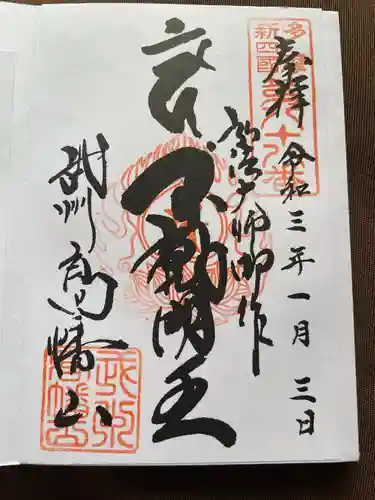 多摩
新四國
第八十八番
奉拝
令和三年一月三日
弘法大師御作
不動明王
武州
高幡山
武州
高幡山